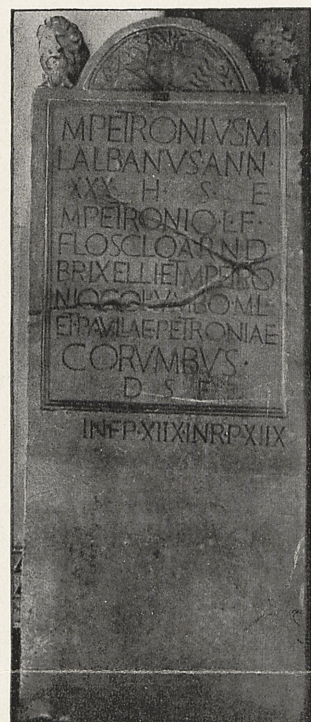 M·PETRONIVS·M·
L·ALBANVS·ANN·
XXX H S E
M·PETRONIO·L·F·
FLOSCLO·ARN·D·
BRIXELLI·ET·M·PETRO
NIO·COLVMBO·M·L·
ET·PAVLAE·PETRONIAE
CORVMBVS·
D S F
INF·P·XIIX·INR·P·XIIX